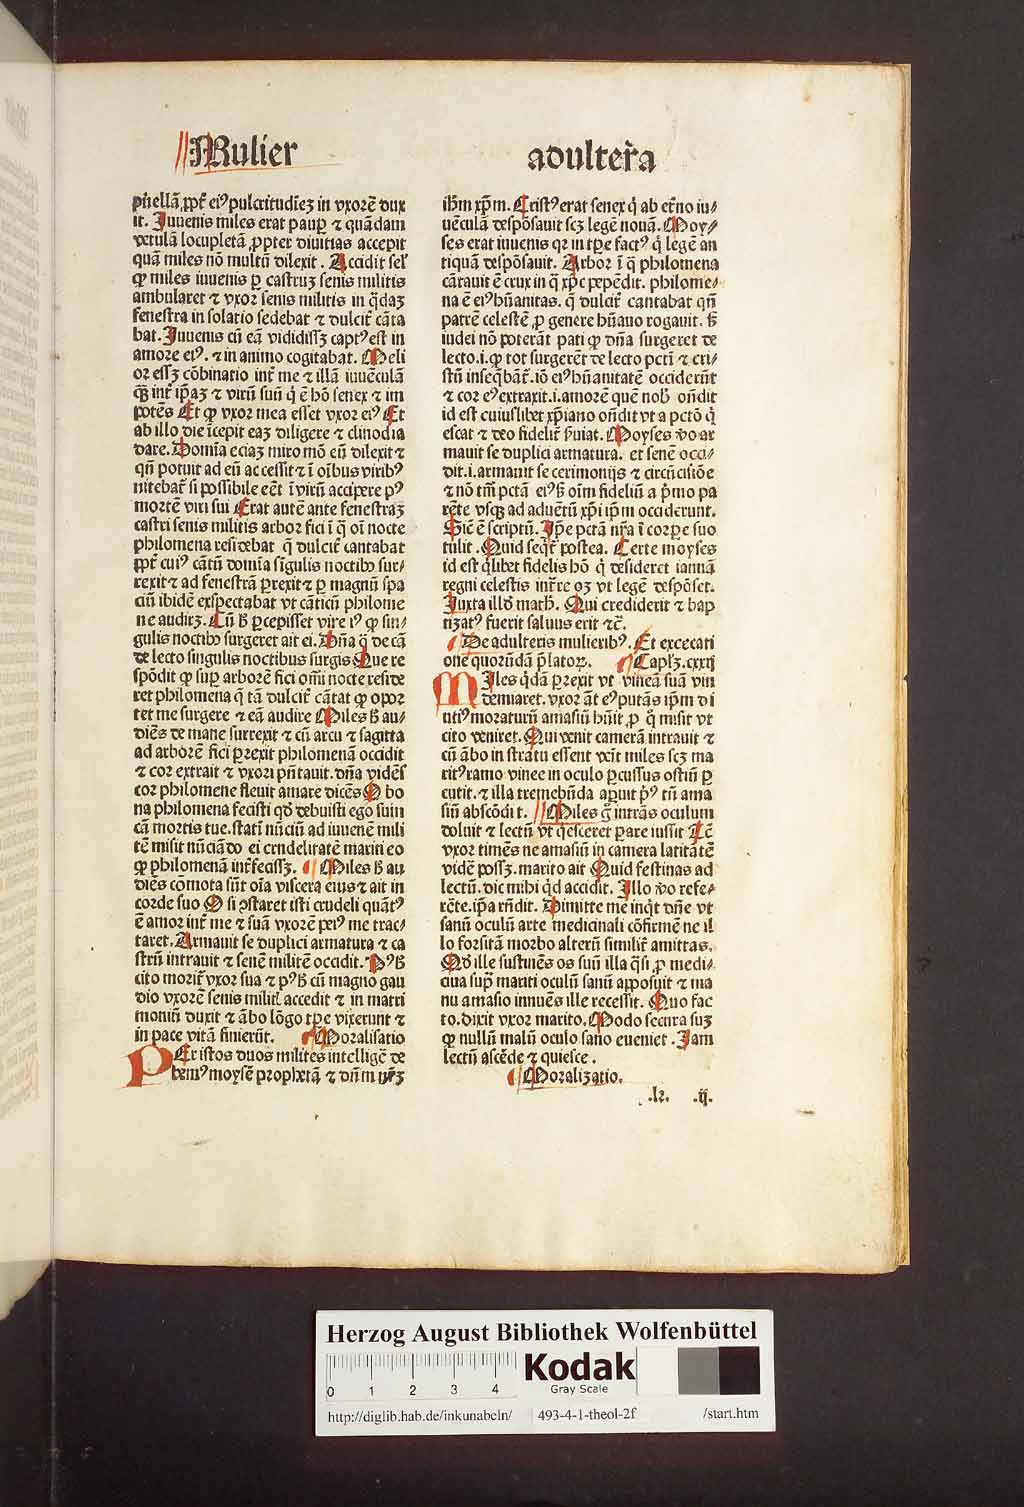 Mulier adulter̄a
puellā ꝓpt̄ eiꝰ pulcritudiez in vxorē dux
it. Juuenis miles erat paup ⁊ quādam
vetulā locupletā ꝓpter diuitias accepit
quā miles nō multū dilexit. Accidit sel̄
ꝙ miles iuuenis ꝑ castruz senis militis
ambularet ⁊ vxor senis militis in q̄daz
fenestra in solatio sedebat ⁊ dulcit̄ cāta
bat. Juuenis cū eā vidissz captꝰ est in
amore eiꝰ. ⁊ in animo cogitabat. Meli
or essz cōbinatio int̄ me ⁊ illā iuuēculā
qȝ int̄ ip̄az ⁊ virū suū q̄ ē hō senex ⁊ im
potēs Et ꝙ vxor mea esset vxor eiꝰ Et
ab illo die īcepit eaz diligere ⁊ clinodia
dare. Domīa eciaz miro mō eū dilexit ⁊
qn̄ potuit ad eū accessit ⁊ ī oībus viribꝰ
nitebat̄ si possibile eēt ī virū accipere pꝰ
mortē viri sui Erat autē ante fenestraz
castri senis militis arbor fici ī q̄ oī nocte
philomena residebat q̄ dulcit̄ cantabat
ꝓpt̄ cuiꝰ cātū domīa sīgulis noctibꝰ sur⸗
rexit ⁊ ad fenestrā ꝑrexit ⁊ ꝑ magnū spa
ciū ibidē exspectabat vt cāticū philome
ne audirz. Cū h̄ ꝑcepisset vir eiꝰ ꝙ sin⸗
gulis noctibꝰ surgeret ait ei. Dn̄a q̄ de cā
de lecto singulis noctibus surgis Que re
spōdit ꝙ suꝑ arborē fici om̄i nocte reside
ret philomena q̄ tā dulcit̄ cātat ꝙ opor
tet me surgere ⁊ eā audire Miles h̄ au⸗
diēs de mane surrexit ⁊ cū arcu ⁊ sagitta
ad arborē fici ꝑrexit philomenā occidit
⁊ cor extrait ⁊ vxori pn̄tauit. dn̄a vidēs
cor philomene fleuit amare dicēs O bo
na philomena fecisti qd̄ debuisti ego suin
cā mortis tue. statī nūciū ad iuuenē mili
tē misit nūciādo ei crudelitatē mariti eo
ꝙ philomenā int̄fecissz. Miles h̄ au
diēs cōmota sūt oīa viscera eius ⁊ ait in
corde suo O si ꝯstaret isti crudeli quātꝰ
ē amor int̄ me ⁊ suā vxorē peiꝰ me trac⸗
taret. Armauit se duplici armatura ⁊ ca
strū intrauit ⁊ senē militē occidit. Pꝰ h̄
cito morit̄ vxor sua ⁊ pꝰ h̄ cū magno gau
dio vxorē senis militꝭ accedit ⁊ in matri
moniū duxit ⁊ ābo lōgo tp̄e vixerunt ⁊
in pace vitā finierūt. Moralisatio
PEr istos duos milites intelligē de
bemꝰ moysē prophetā ⁊ dn̄m nr̄z
ihm̄ xp̄m. Cristꝰ erat senex q̄ ab et̄no iu⸗
uēculā despōsauit scz legē nouā. Moy⸗
ses erat iuuenis qr in tp̄e factꝰ q̄ legē an
tiquā despōsauit. Arbor ī q̄ philomena
cātauit ē crux in q̄ xp̄c pepēdit. philome⸗
na ē eiꝰ hūanitas. q̄ dulcit̄ cantabat qn̄
patrē celestē ꝓ genere hūano rogauit. h̄
iudei nō poterāt pati ꝙ dn̄a surgeret de
lecto.i.ꝙ tot surgerēt de lecto pctī ⁊ cri⸗
stū inseqbāt̄. iō eiꝰ hūanitatē occiderūt
⁊ cor eꝰ extraxit.i.amorē quē nob̄ on̄dit
id est cuiuslibet xp̄iano on̄dit vt a pctō q̄
escat ⁊ deo fidelit̄ ẜuiat. Moyses v̄o ar
mauit se duplici armatura. et senē occi⸗
dit.i.armauit se cerimonijs ⁊ circūcisiōe
⁊ nō tm̄ pctā eiꝰ h̄ oīm fideliū a pͥmo pa
rēte vsqȝ ad aduētū xp̄i ip̄m occiderunt.
Sic ē scriptū. Ip̄e pctā nr̄a ī corꝑe suo
tulit. Quid seqt̄ postea. Certe moyses
id est q̄libet fidelis hō q̄ desideret ianuā
regni celestis int̄re oz vt legē despōset.
Juxta illd̄ math̄. Qui crediderit ⁊ bap
tizatꝰ fuerit saluus erit ⁊c̄.
De adulteris mulieribꝰ. Et excecati
one quorūdā p̄latoꝝ. Caplz. cxxij
MIles qdā ꝑrexit vt vineā suā vin
demiaret. vxor āt eꝰ putās ip̄m di
utiꝰ moraturū amasiū hūit ꝓ q̄ misit vt
cito veniret. Qui venit camerā intrauit ⁊
cū ābo in stratu essent veīt miles scz ma
ritꝰ ramo vinee in oculo ꝑcussus ostiū ꝑ
cutit. ⁊ illa tremebūda aꝑuit pͥꝰ tn̄ ama
siū abscōdit. Miles gͦ intrās oculum
doluit ⁊ lectū vt q̄esceret ꝑare iussit At̄
vxor timēs ne amasiū in camera latitātē
vidē possz. marito ait Quid festinas ad
lectū. dic mihi qd accidit. Illo v̄o refe⸗
rēte. ip̄a rn̄dit. Dimitte me inqt dn̄e vt
sanū oculū arte medicinali cōfirmē ne il
lo forsitā morbo alterū similit̄ amittas.
Qd̄ ille sustinēs os suū illa q̄si ꝓ medi⸗
cina suꝑ mariti oculū sanū apposuit ⁊ ma
nu amasio innuēs ille recessit. Quo fac
to. dixit vxor marito. Modo secura suz
ꝙ nullū malū oculo sano eueniet. Jam
lectū ascēde ⁊ quiesce.
Moralizatio.
.lz. .ij.
Herzog August Bibliothek Wolfenbüttel
0 1 2 3 4
Kodak
Gray Scale
http://diglib.hab.de/inkunabeln/ 493-4-1-theol-2f /start.htm